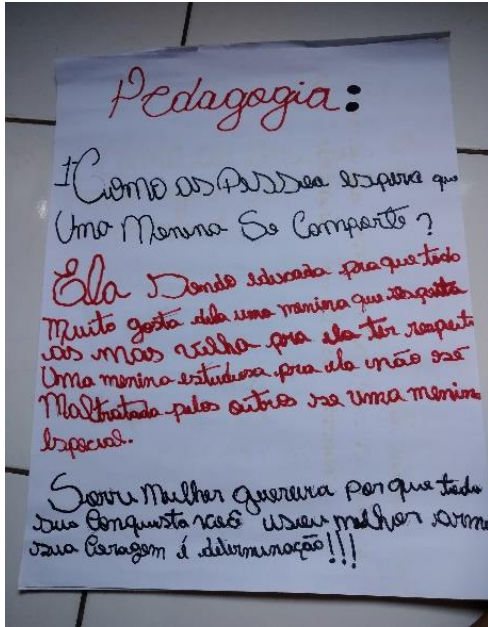 Pedagogia:
1 Como as Pessoa espera que
Uma Menina Se Comporte?
Ela Sendo educada pra que todo
Muito gosta dela uma menina que respeita
as mas velha pra ela ter respeito
Uma menina estudiosa pra ela não sé
Maltratada pelos outros se uma menina
Especial.
Mulher guereira por que toda
sua Conquista você usou melhor arma
sua Coragem é determinação!!!